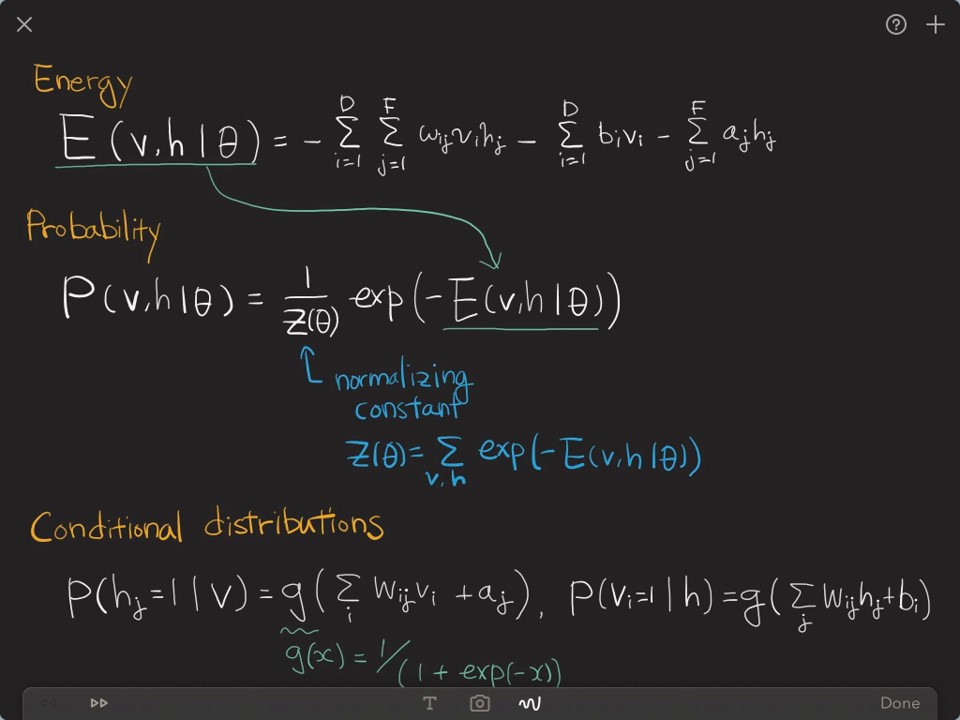 Energy
E(v,h|θ) = - Σ_{i=1}^{D} Σ_{j=1}^{F} w_{ij}v_ih_j - Σ_{i=1}^{D} b_iv_i - Σ_{j=1}^{F} a_jh_j
Probability
P(v,h|θ) = 1/Z(θ) exp(-E(v,h|θ))
normalizing
constant
Z(θ) = Σ_{v,h} exp(-E(v,h|θ))
Conditional distributions
P(h_j=1|v) = g(Σ_i W_{ij}v_i + a_j), P(v_i=1|h) = g(Σ_j W_{ij}h_j+b_i)
g(x) = 1/(1 + exp(-x))
T Done